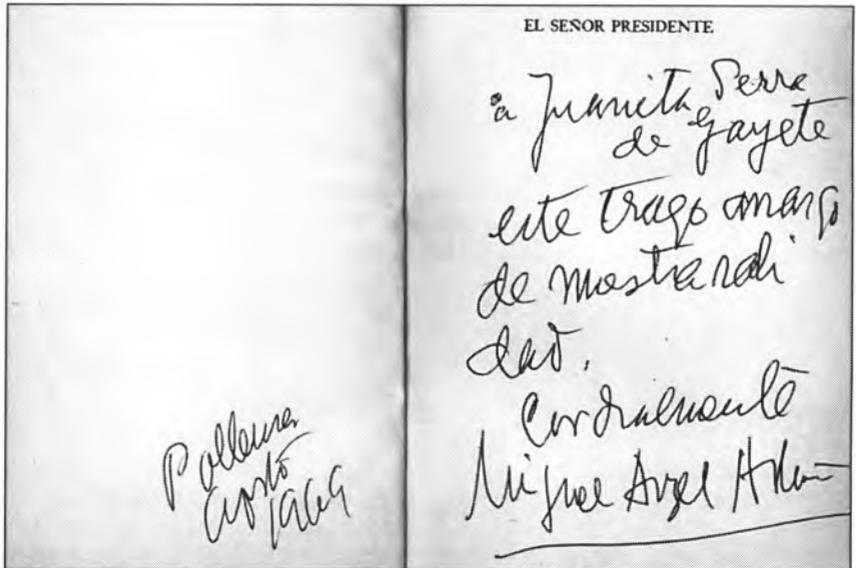 Pollensa
agosto
1969
EL SEÑOR PRESIDENTE
a Juanita Serra
de Gayete
este trago amargo
de nuestra reali
dad.
Cordialmente
Miguel Angel Asturias